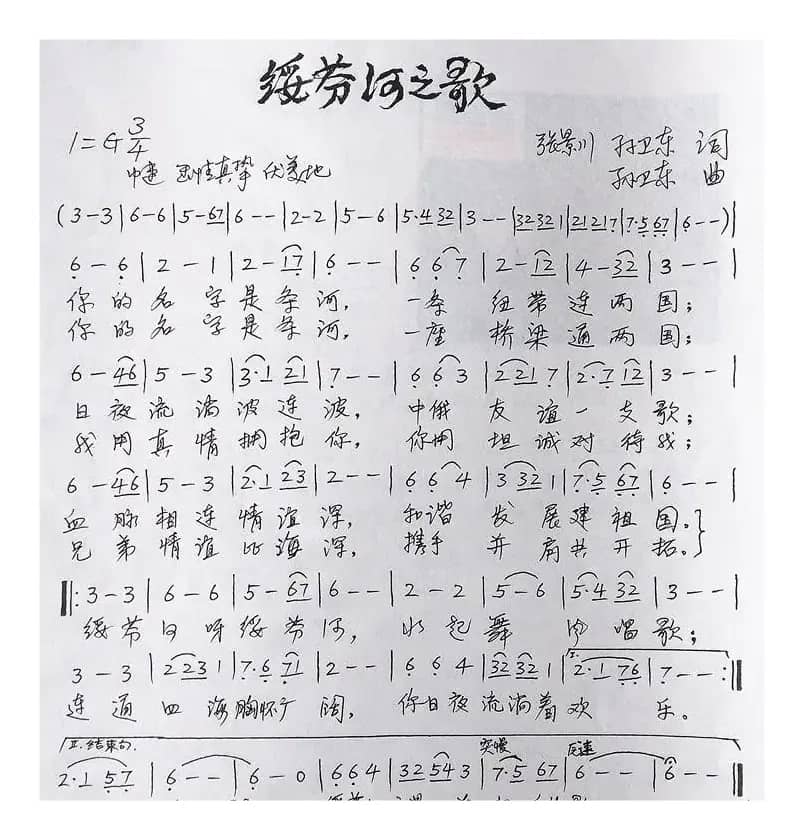 绥芬河之歌
1=G 3/4
张景川 孙卫东 词
中速 真挚 优美地
孙卫东 曲
(3-3|6-6|5-67|6--|2-2|5-6|5·432|3--|32321|21217|7·567|6--)|
6-6|2-1|2-17|6--|667|2-12|4-32|3--|
你的名字是条河, 一条纽带连两国;
你的名字是条河, 一座桥梁通两国;
6-46|5-3|3·121|7--|663|2217|2·712|3--|
日夜流淌波连波, 中俄友谊一支歌;
我用真情拥抱你, 你用坦诚对待我;
6-46|5-3|2·123|2--|664|3321|7·567|6--|
血脉相连情谊深, 和谐发展建祖国。
兄弟情谊比海深, 携手并肩共开拓。
‖:3-3|6-6|5-67|6--|2-2|5-6|5·432|3--|
绥芬河呀绥芬河, 水起舞风唱歌;
3-3|2231|7·671|2--|664|32321|I.2·176|7--:‖
连通四海胸怀广阔, 你日夜流淌着欢乐。
II.结束句. 突慢 反速
2·157|6--|6-0|664|32543|7·567|6--|6--‖